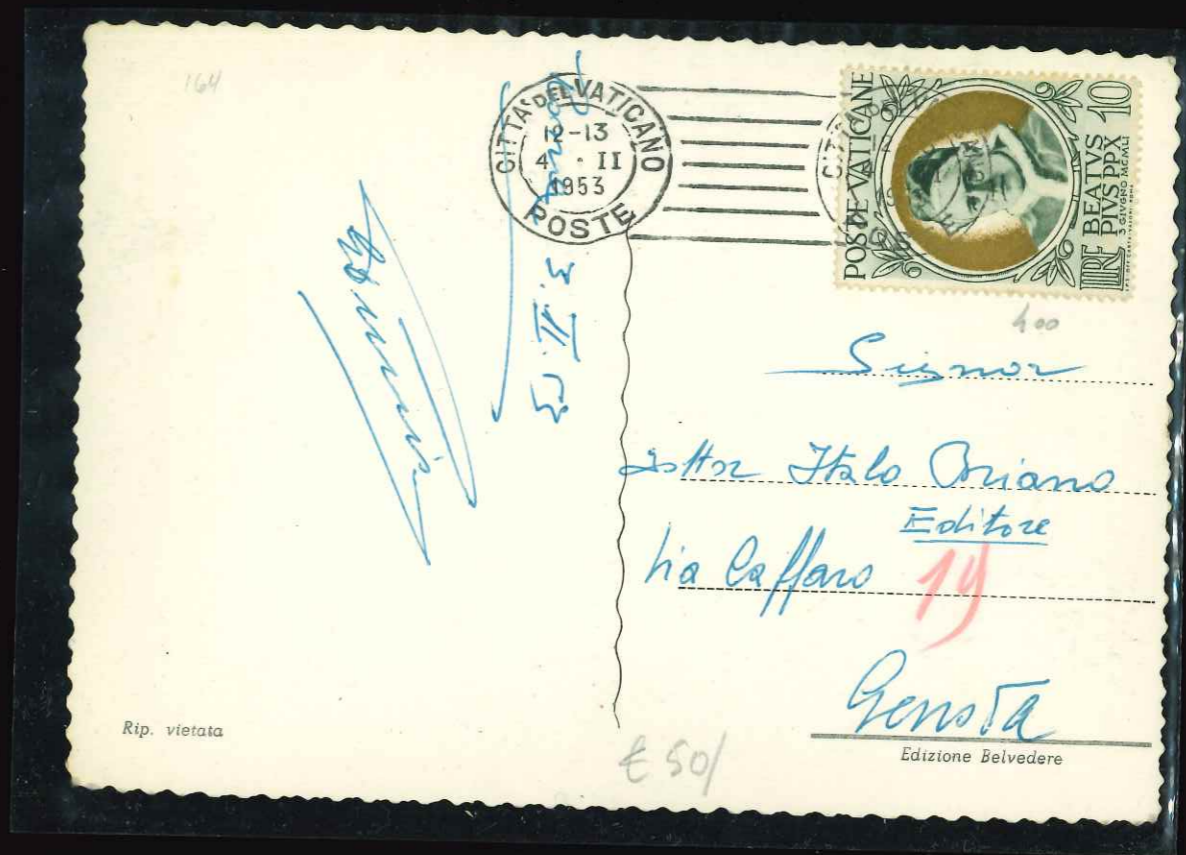 164
CITTA' DEL VATICANO
12-13
4 · II
1953
POSTE
POSTE VATICANE
BEATVS
PIVS PP X
3 GIVGNO MCMLI
LIRE 10
400
Roma
3. II 53
Signor
Dottor Italo Briano
Editore
Via Caffaro 19
Genova
Rip. vietata
Edizione Belvedere
£ 50/